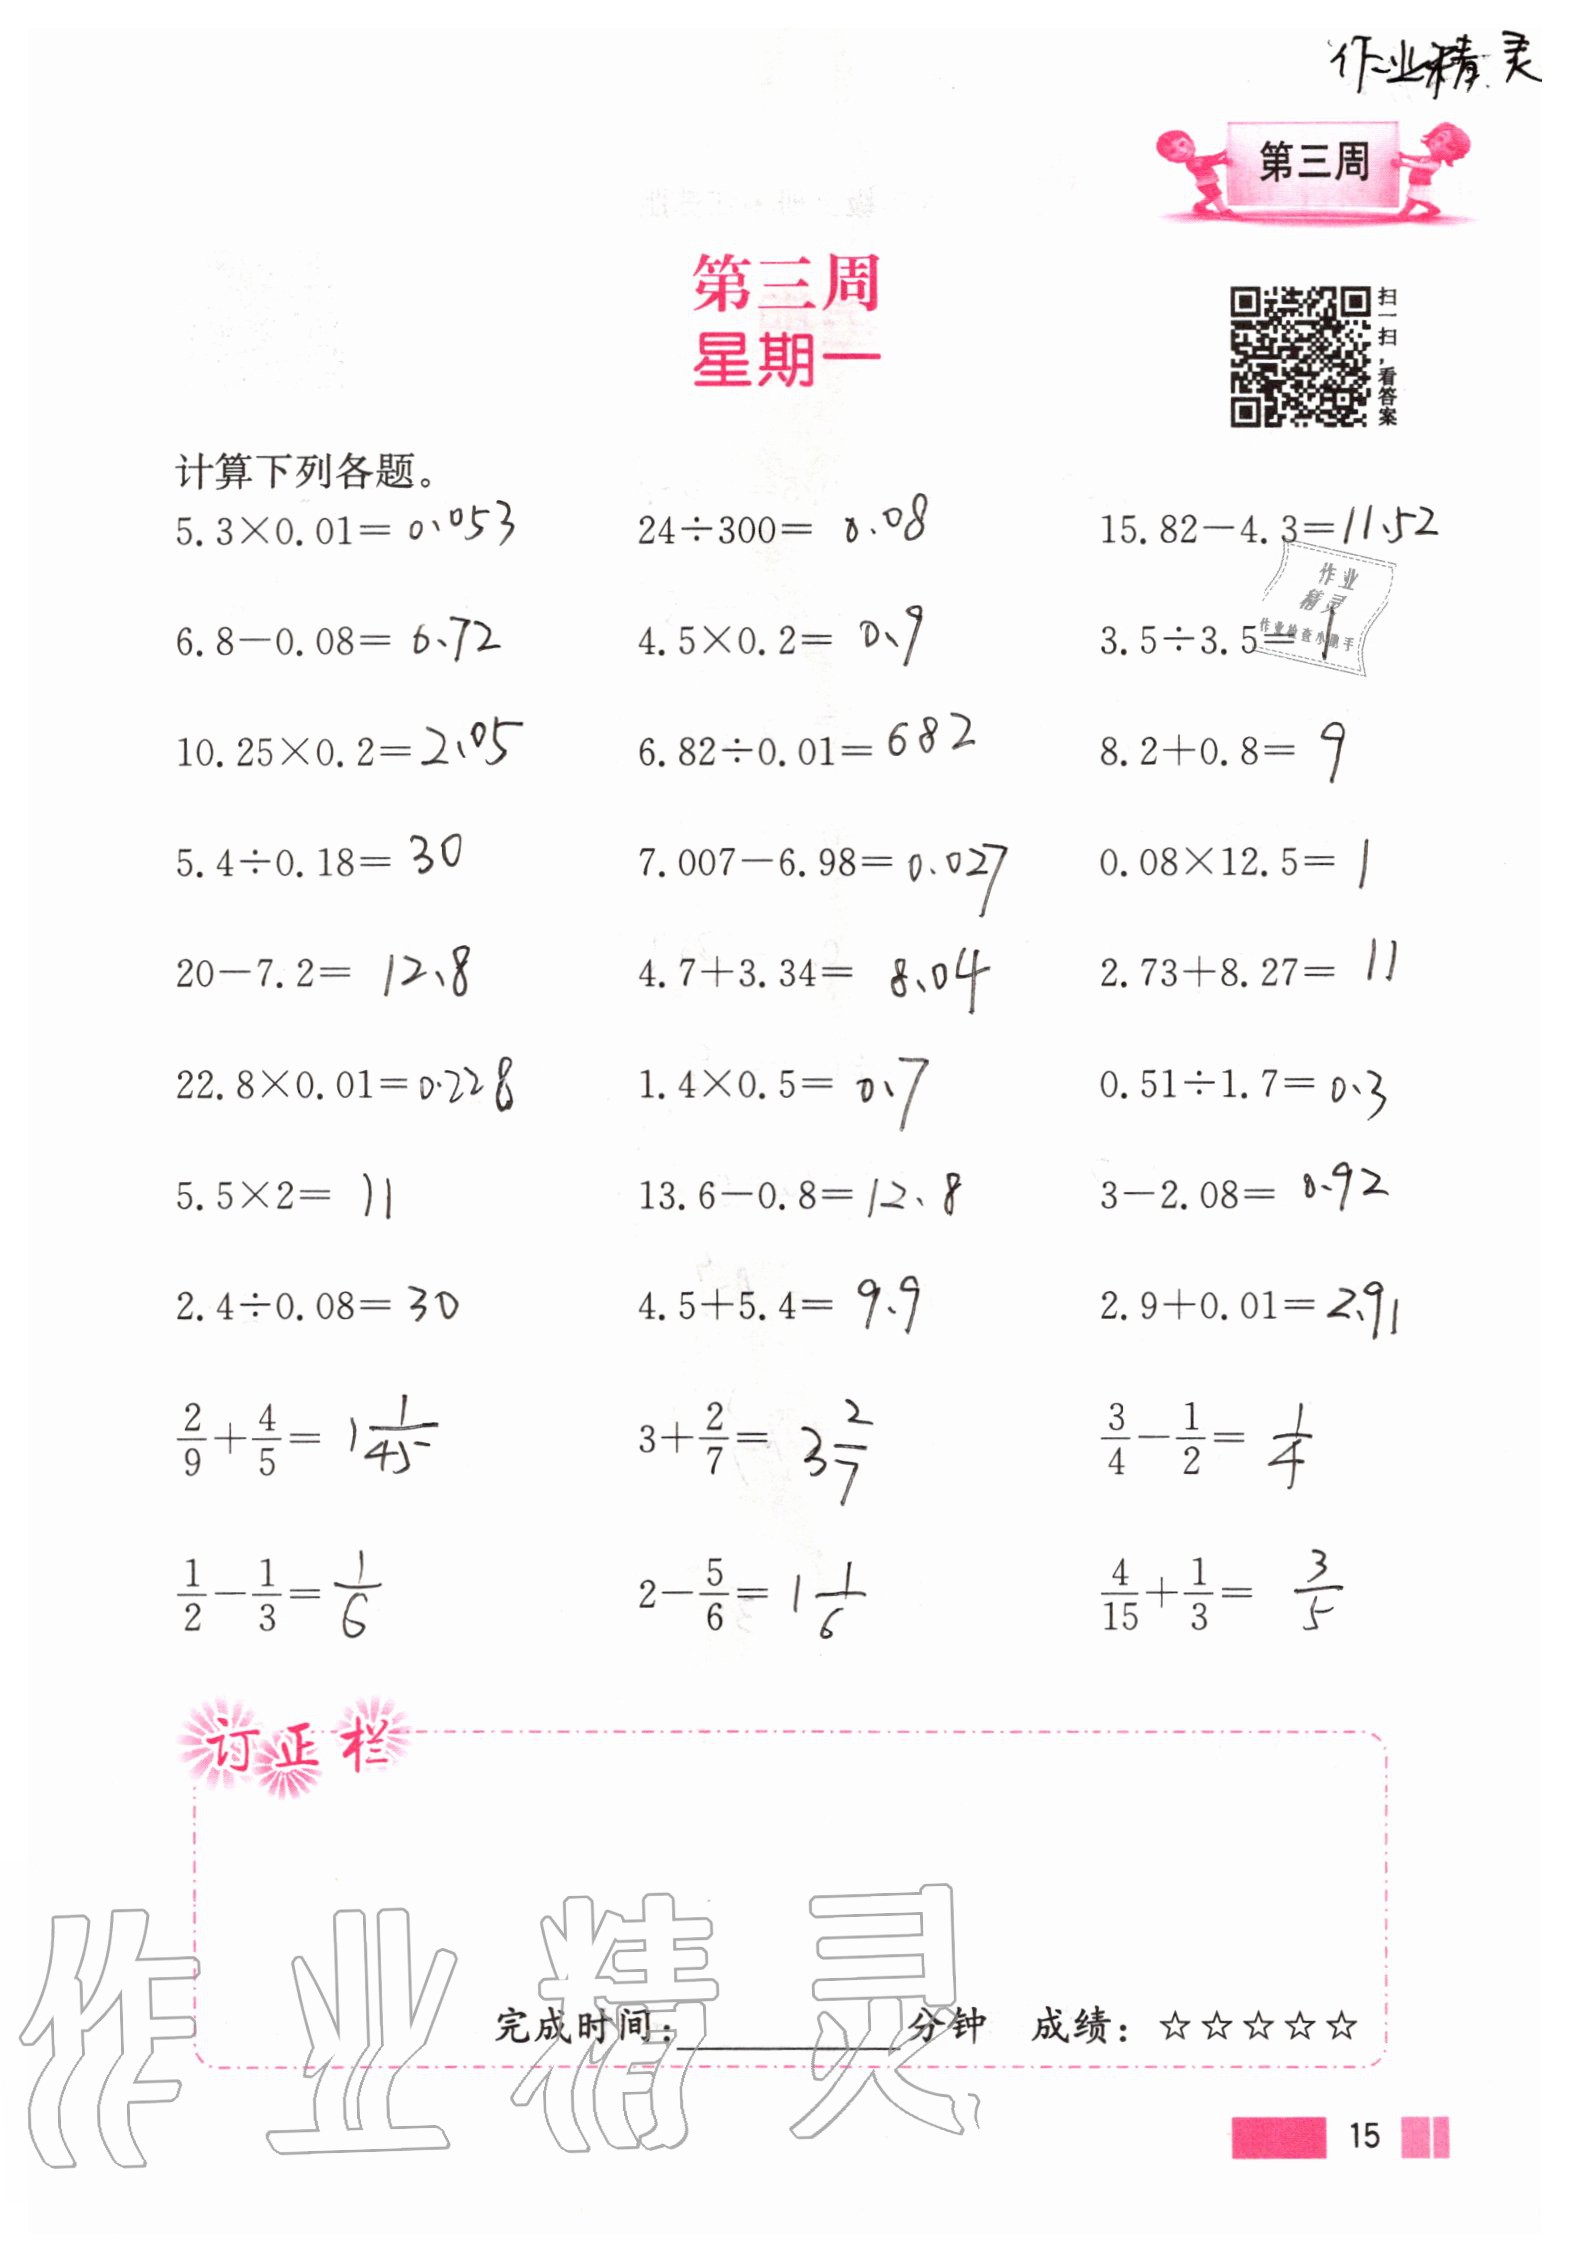 作业精灵
第三周
第三周
星期一
扫一扫,看答案
计算下列各题。
5.3×0.01=0.053 24÷300=0.08 15.82-4.3=11.52
作业
精灵
作业检查小助手
6.8-0.08=6.72 4.5×0.2=0.9 3.5÷3.5=1
10.25×0.2=2.05 6.82÷0.01=682 8.2+0.8=9
5.4÷0.18=30 7.007-6.98=0.027 0.08×12.5=1
20-7.2=12.8 4.7+3.34=8.04 2.73+8.27=11
22.8×0.01=0.228 1.4×0.5=0.7 0.51÷1.7=0.3
5.5×2=11 13.6-0.8=12.8 3-2.08=0.92
2.4÷0.08=30 4.5+5.4=9.9 2.9+0.01=2.91
2/9+4/5=1 1/45 3+2/7=3 2/7 3/4-1/2=1/4
1/2-1/3=1/6 2-5/6=1 1/6 4/15+1/3=3/5
订正栏
作业精灵
完成时间:__________分钟 成绩:☆☆☆☆☆
15